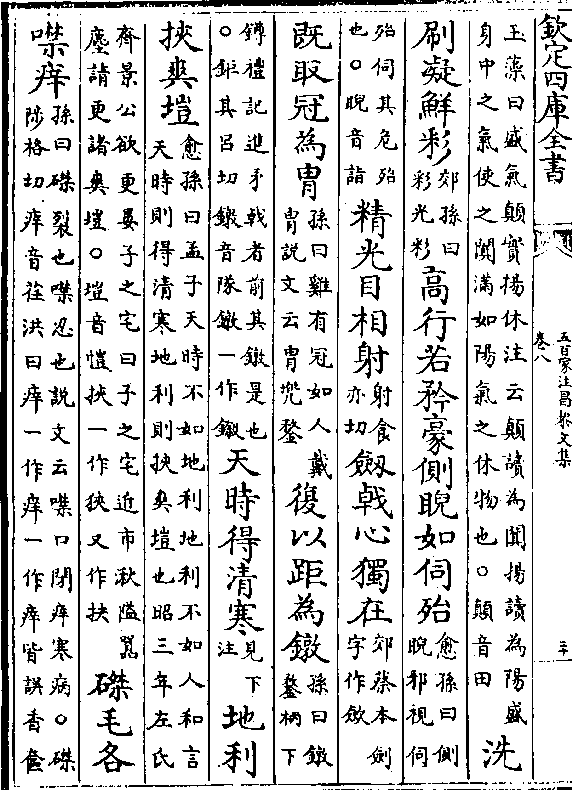 欽定四庫全書
五百家注昌黎文集
卷八
三十
玉藻曰盛氣顛實揚休注云顛讀為闐揚讀為陽盛
身中之氣使之闐滿如陽氣之休物也○顛音田
洗
刷凝鮮彩
郊孫曰
彩光彩
高行若矜豪側睨如伺殆
愈孫曰側
睨邪視伺
殆伺其危殆
也○睨音詣
精光目相射
射食
亦切
劔戟心獨在
郊蔡本劍
字作斂
既取冠為胄
孫曰雞有冠如人戴
胄説文云胄兠鍪
復以距為鐓
孫曰鐓
鍪柄下
鐏禮記進矛戟者前其鐓是也
○鉅其呂切鐓音隊鐓一作
天時得清寒
見下
注
地利
挾爽塏
愈孫曰孟子天時不如地利地利不如人和言
天時則得清寒地利則挾爽塏也昭三年左氏
齊景公欲更晏子之宅曰子之宅近市湫隘囂
塵請更諸爽塏○塏音愷挾一作狹又作抉
磔毛各
噤痒
孫曰磔裂也噤忍也説文云噤口閉痒寒病○磔
陟格切痒音洪曰痒一作痒一作痒皆誤香